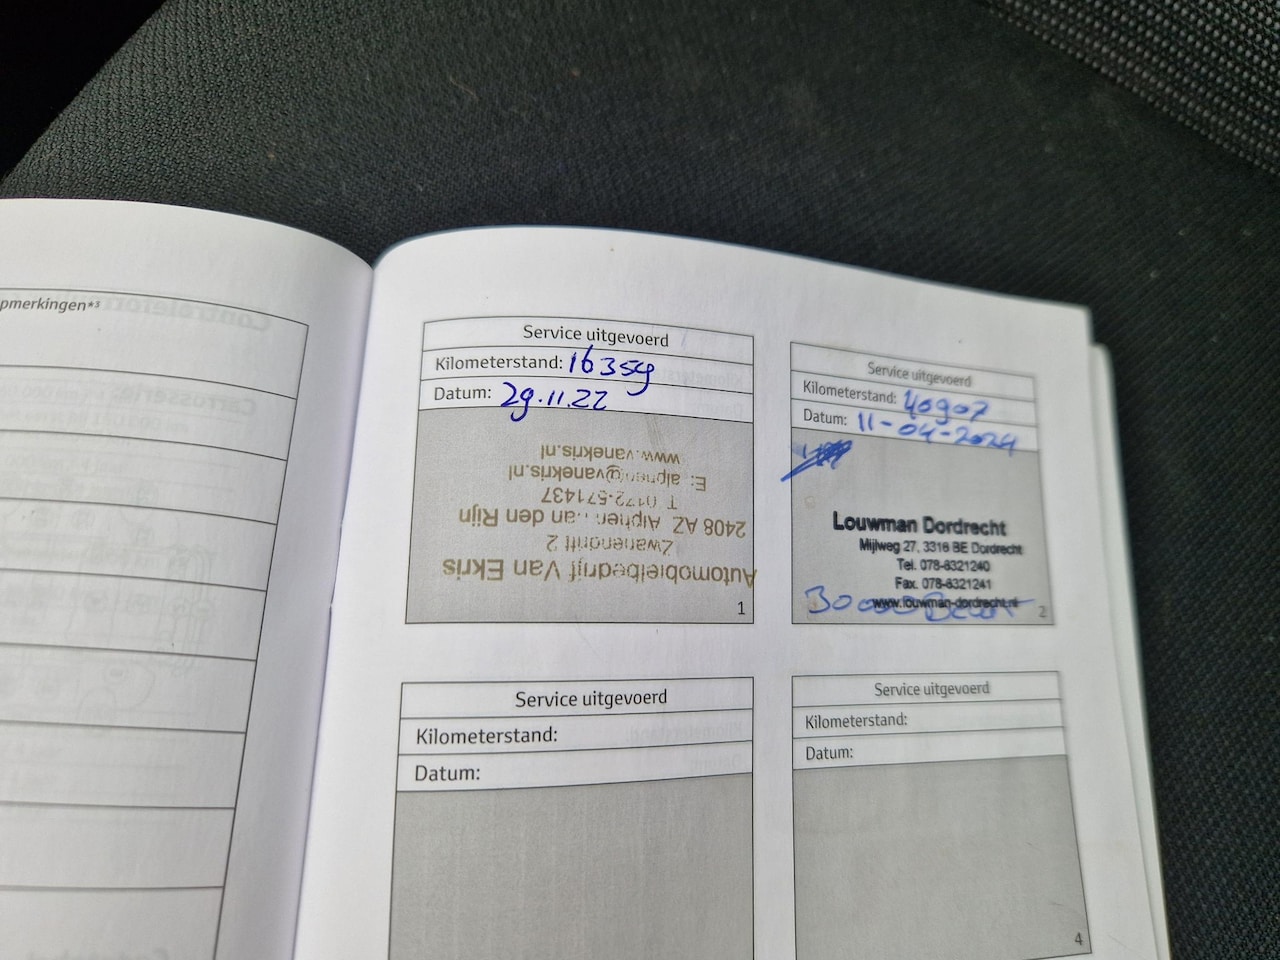 pmerkingen*³
Service uitgevoerd
Kilometerstand: 16359
Datum: 29.11.22
Automobielbedrijf Van Ekris
Zwanendrift 2
2408 AZ Alphen aan den Rijn
T 0172-571437
E: alphen@vanekris.nl
www.vanekris.nl
1
Service uitgevoerd
Kilometerstand: 40907
Datum: 11-04-2024
Louwman Dordrecht
Mijlweg 27, 3316 BE Dordrecht
Tel. 078-6321240
Fax. 078-6321241
www.louwman-dordrecht.nl
30000
2
Service uitgevoerd
Kilometerstand:
Datum:
Service uitgevoerd
Kilometerstand:
Datum:
4